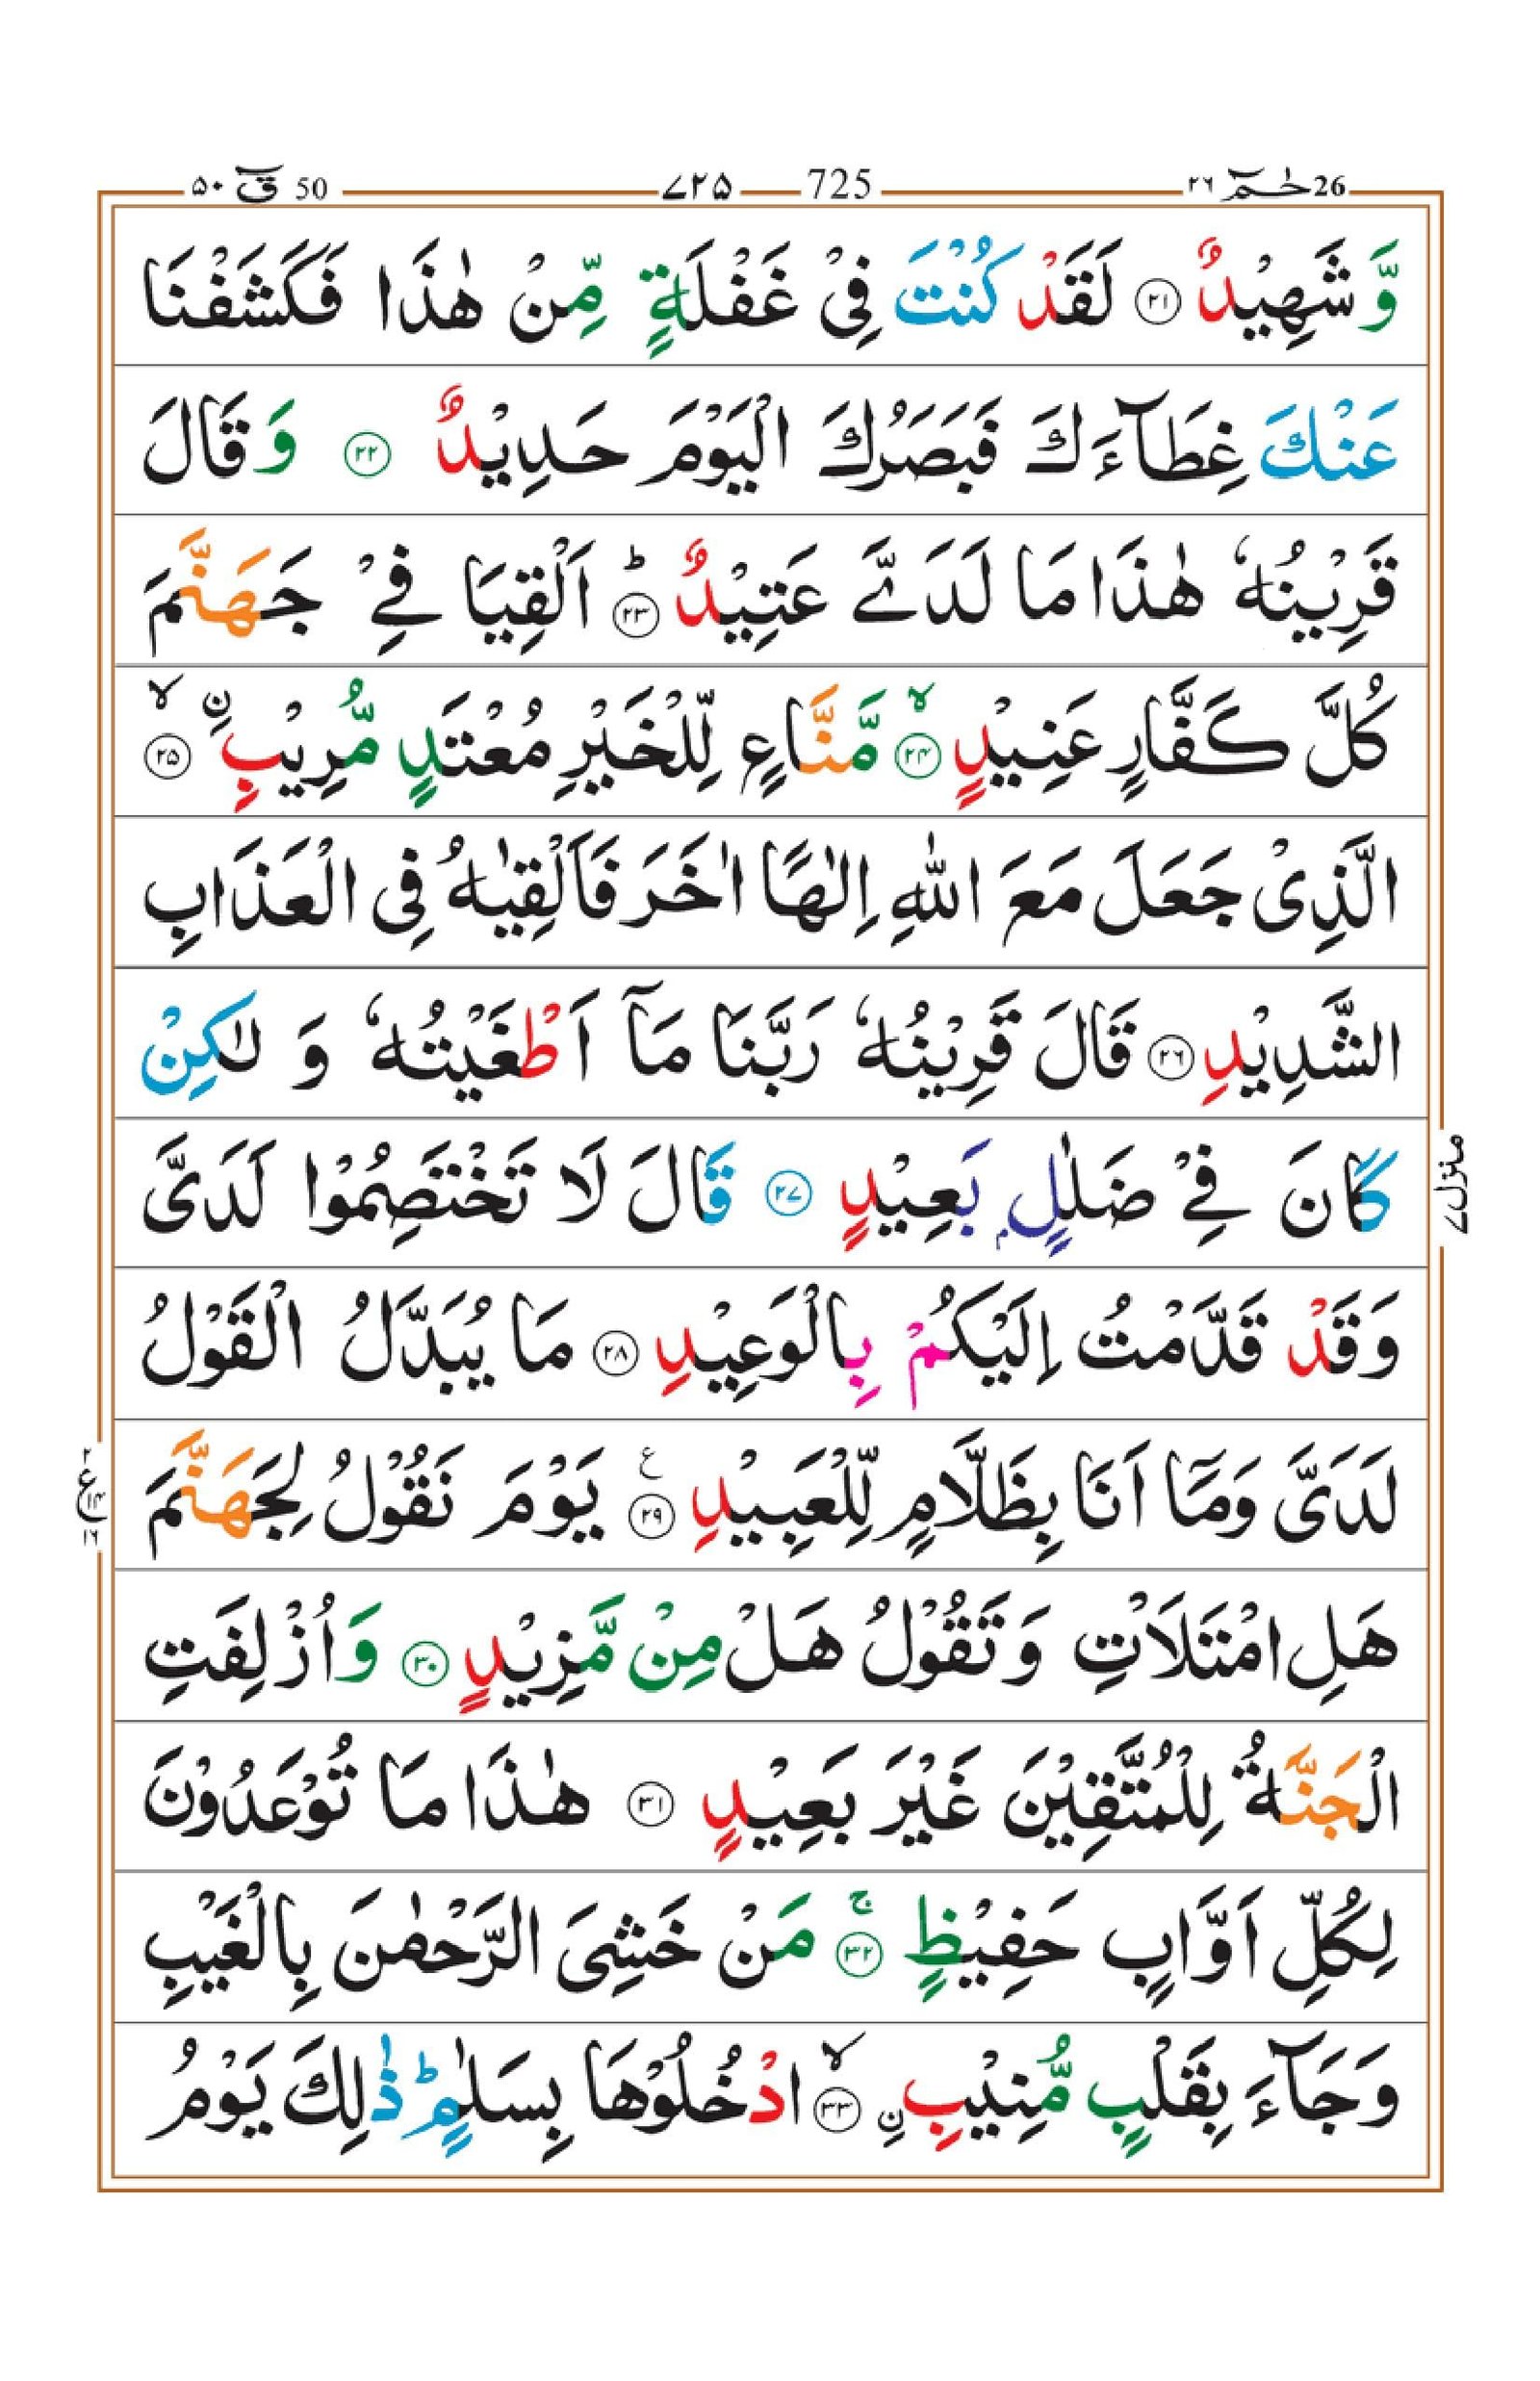 26 حٰمٓ ٢٦ 725 ٧٢٥ 50 قٓ ٥٠
وَّ شَهِيْدٌ ٢١ لَقَدْ كُنْتَ فِيْ غَفْلَةٍ مِّنْ هٰذَا فَكَشَفْنَا
عَنْكَ غِطَآءَكَ فَبَصَرُكَ الْيَوْمَ حَدِيْدٌ ٢٢ وَ قَالَ
قَرِيْنُهٗ هٰذَا مَا لَدَيَّ عَتِيْدٌ ٢٣ؕ اَلْقِيَا فِيْ جَهَنَّمَ
كُلَّ كَفَّارٍ عَنِيْدٍ ٢٤ۙ مَّنَّاعٍ لِّلْخَيْرِ مُعْتَدٍ مُّرِيْبِ ن ٢٥ۙ
الَّذِيْ جَعَلَ مَعَ اللّٰهِ اِلٰهًا اٰخَرَ فَاَلْقِيٰهُ فِى الْعَذَابِ
الشَّدِيْدِ ٢٦ قَالَ قَرِيْنُهٗ رَبَّنَا مَآ اَطْغَيْتُهٗ وَ لٰكِنْ
كَانَ فِيْ ضَلٰلٍۭ بَعِيْدٍ ٢٧ قَالَ لَا تَخْتَصِمُوْا لَدَيَّ
وَقَدْ قَدَّمْتُ اِلَيْكُمْ بِالْوَعِيْدِ ٢٨ مَا يُبَدَّلُ الْقَوْلُ
لَدَيَّ وَمَآ اَنَا بِظَلَّامٍ لِّلْعَبِيْدِ ٢٩ ع يَوْمَ نَقُوْلُ لِجَهَنَّمَ
هَلِ امْتَلَاْتِ وَتَقُوْلُ هَلْ مِنْ مَّزِيْدٍ ٣٠ وَاُزْلِفَتِ
الْجَنَّةُ لِلْمُتَّقِيْنَ غَيْرَ بَعِيْدٍ ٣١ هٰذَا مَا تُوْعَدُوْنَ
لِكُلِّ اَوَّابٍ حَفِيْظٍ ٣٢ۚ مَنْ خَشِيَ الرَّحْمٰنَ بِالْغَيْبِ
وَجَآءَ بِقَلْبٍ مُّنِيْبِ ن ٣٣ۙ ادْخُلُوْهَا بِسَلٰمٍؕ ذٰلِكَ يَوْمُ
منزل ٧
٢ ع ١٤ ١٦